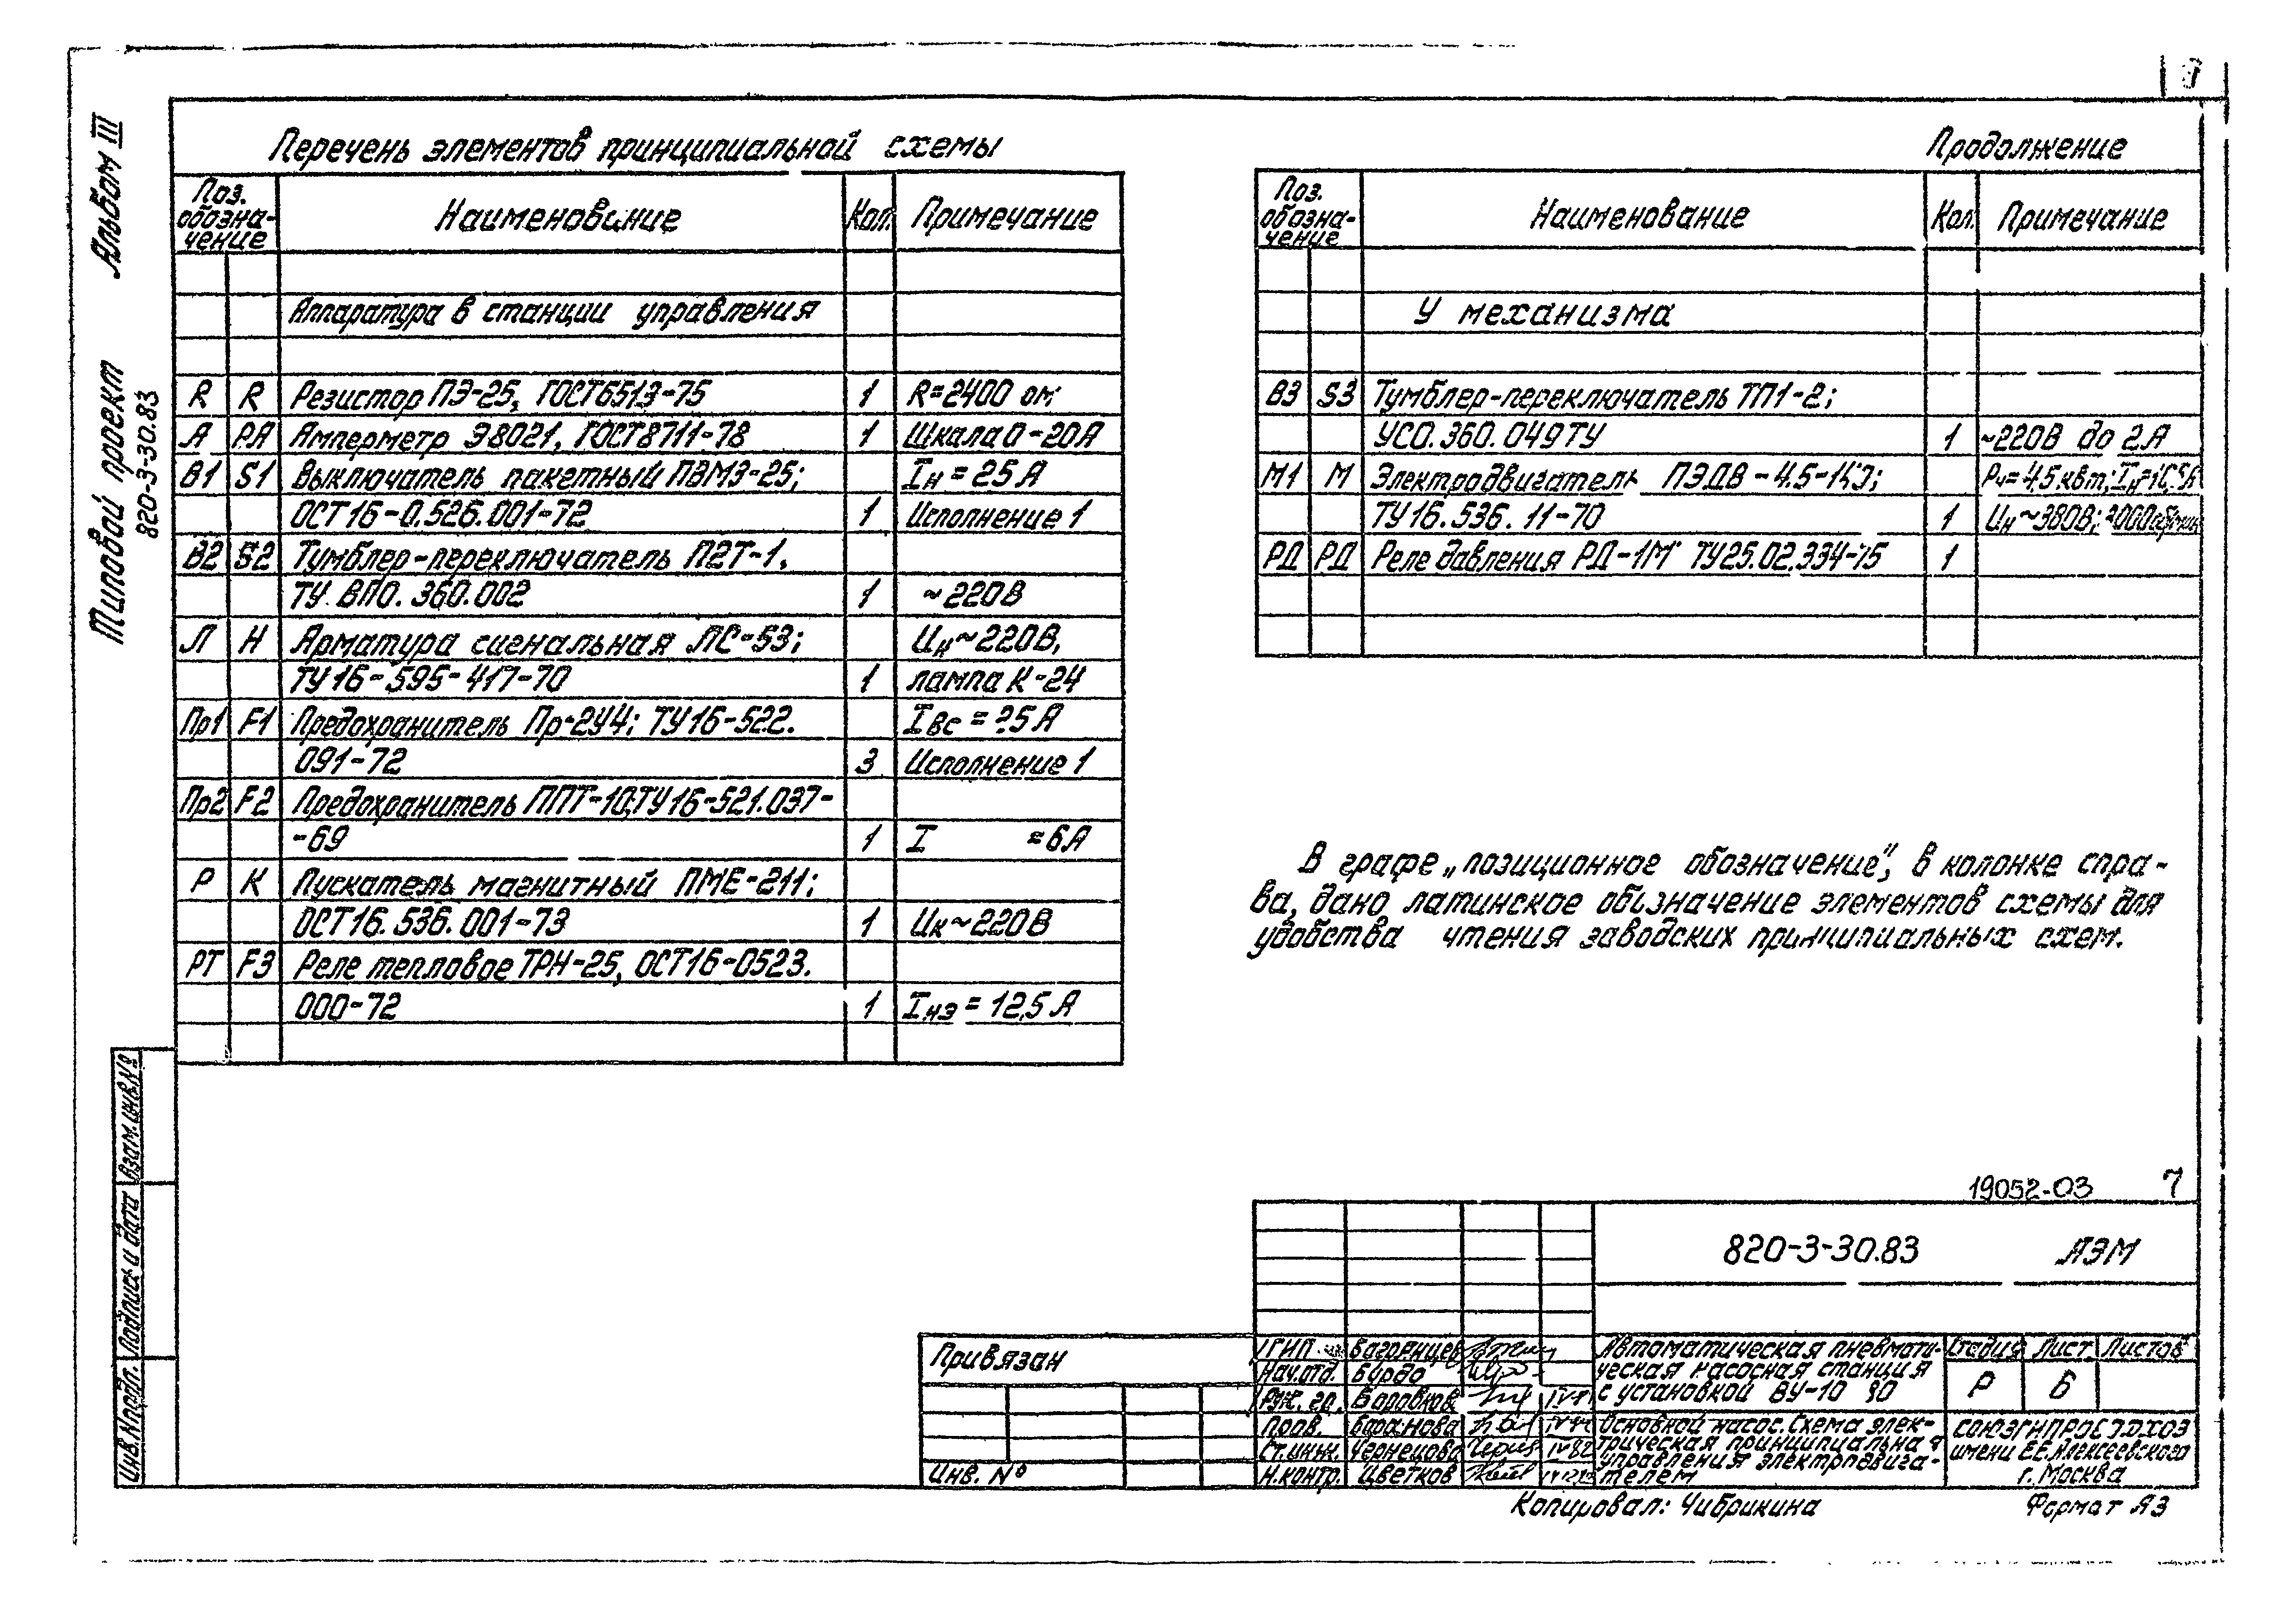 Альбом III
Типовой проект
820-3-30.83
Перечень элементов принципиальной схемы
Поз. обозна-чение Наименование Кол. Примечание
Аппаратура в станции управления
R R Резистор ПЭ-25, ГОСТ6513-75 1 R=2400 ом
А РА Амперметр Э8021, ГОСТ8711-78 1 Шкала 0-20А
В1 S1 Выключатель пакетный ПВМ3-25; Iн = 25 А
ОСТ16-0.526.001-72 1 Исполнение 1
В2 S2 Тумблер-переключатель П2Т-1,
ТУ ВПО. 360.002 1 ~220В
Л Н Арматура сигнальная ЛС-53; Uн~220В,
ТУ16-595-417-70 1 лампа К-24
Пр1 F1 Предохранитель Пр-2У4; ТУ16-522. Iвс = 25 А
091-72 3 Исполнение 1
Пр2 F2 Предохранитель ППТ-10,ТУ16-521.037-
-69 1 I =6А
Р К Пускатель магнитный ПМЕ-211;
ОСТ16.536.001-73 1 Uк~220В
РТ F3 Реле тепловое ТРН-25, ОСТ16-0523.
000-72 1 Iнэ = 12,5 А
Продолжение
Поз. обозна-чение Наименование Кол. Примечание
У механизма
В3 S3 Тумблер-переключатель ТП1-2;
УСО.360.049ТУ 1 ~220В до 2А
М1 М Электродвигатель ПЭДВ-4.5-140; Рн=4,5 квт;
ТУ16.536. 11-70 1 Uн~380В;
РД РД Реле давления РД-1М ТУ25.02.334-75 1
В графе „позиционное обозначение", в колонке спра-
ва, дано латинское обозначение элементов схемы для
удобства чтения заводских принципиальных схем.
19052-03 7
820-3-30.83 АЭМ
Привязан
Инв. №
ГИП Багорянцев
Нач.отд. Бурдо
Рук. гр. Боровков
Пров. Баранова
Ст.инж. Чернецова
Н.контр. Цветков
Автоматическая пневмати-
ческая насосная станция
с установкой ВУ-10 80
Основной насос. Схема элек-
трическая принципиальная
управления электродвига-
телем
Стадия Лист Листов
Р 6
СОЮЗГИПРОВОДХОЗ
имени Е.Е.Алексеевского
г. Москва
Копировал: Чибрикина Формат А3
Взам.инв.№
Подпись и дата
Инв.№подл.